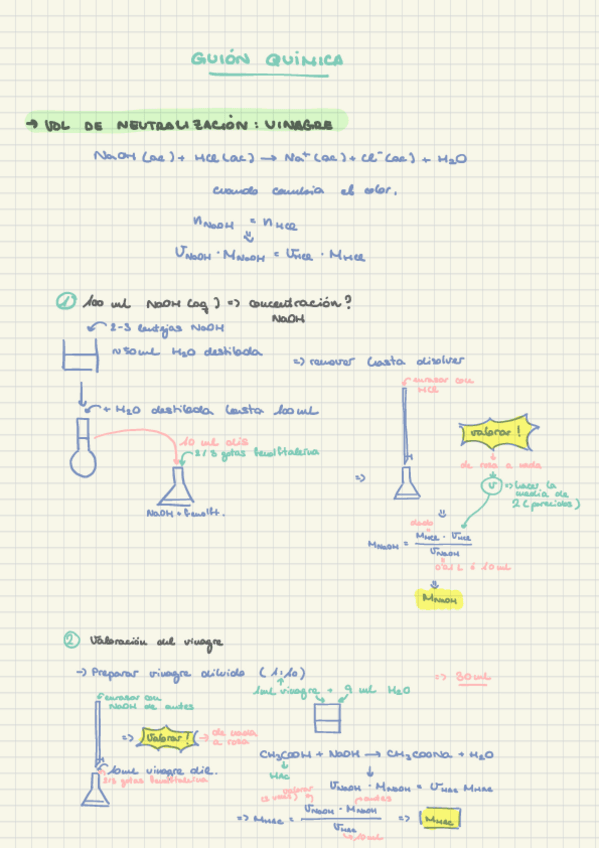 GUIÓN QUÍMICA
→ VOL DE NEUTRALIZACIÓN: VINAGRE
NaOH (ac) + HCl (ac) → Na⁺ (ac) + Cl⁻ (ac) + H₂O
cuando cambia el color.
n NaOH = n HCl
⇓
V NaOH · M NaOH = V HCl · M HCl
① 100 ml NaOH (aq) => concentración?
NaOH
2-3 lentejas NaOH
≈50ml H₂O destilada
=> remover hasta disolver
+ H₂O destilada hasta 100ml
10 ml dis
2/3 gotas fenolftaleina
NaOH + fenolft.
=>
enrasar con
HCl
valorar!
de rosa a nada
V => hacer la
media de
2 (parecidos)
⇓
dado
M NaOH = M HCl · V HCl / V NaOH
0'01 L ó 10 ml
⇓
M NaOH
② Valoración del vinagre
→ Preparar vinagre diluido (1:10) => 30ml
1ml vinagre + 9 ml H₂O
enrasar con
NaOH de antes
=> Valorar! → de nada
a rosa
10ml vinagre dis.
2/3 gotas fenolftaleina
CH₃COOH + NaOH → CH₃COONa + H₂O
HAc
V NaOH · M NaOH = V HAc M HAc
valorar
(2 veces)
antes
=> M HAc = V NaOH · M NaOH / V HAc => M HAc
10ml